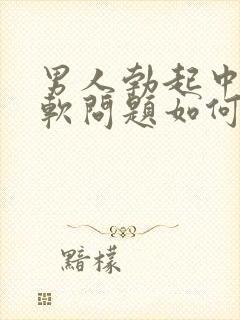 男人勃起中
軟問題如何
黯檬